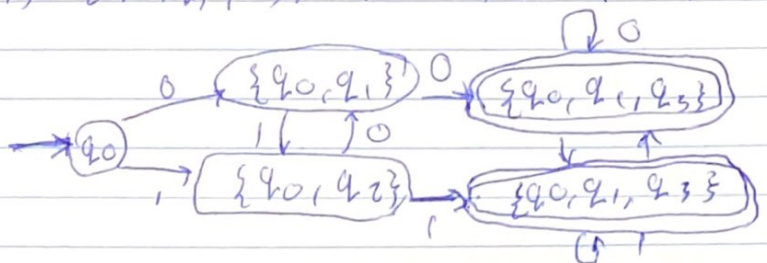 0
{q0, q1} 0 {q0, q1, q3}
0
q0 1 0
1 {q0, q2} {q0, q1, q3}
1
1